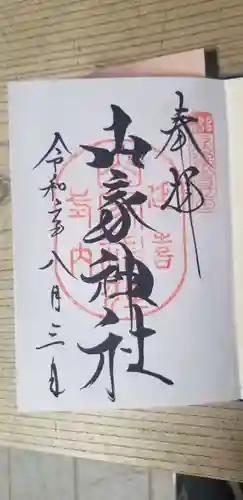 奉拝
山家神社
令和六年八月三日